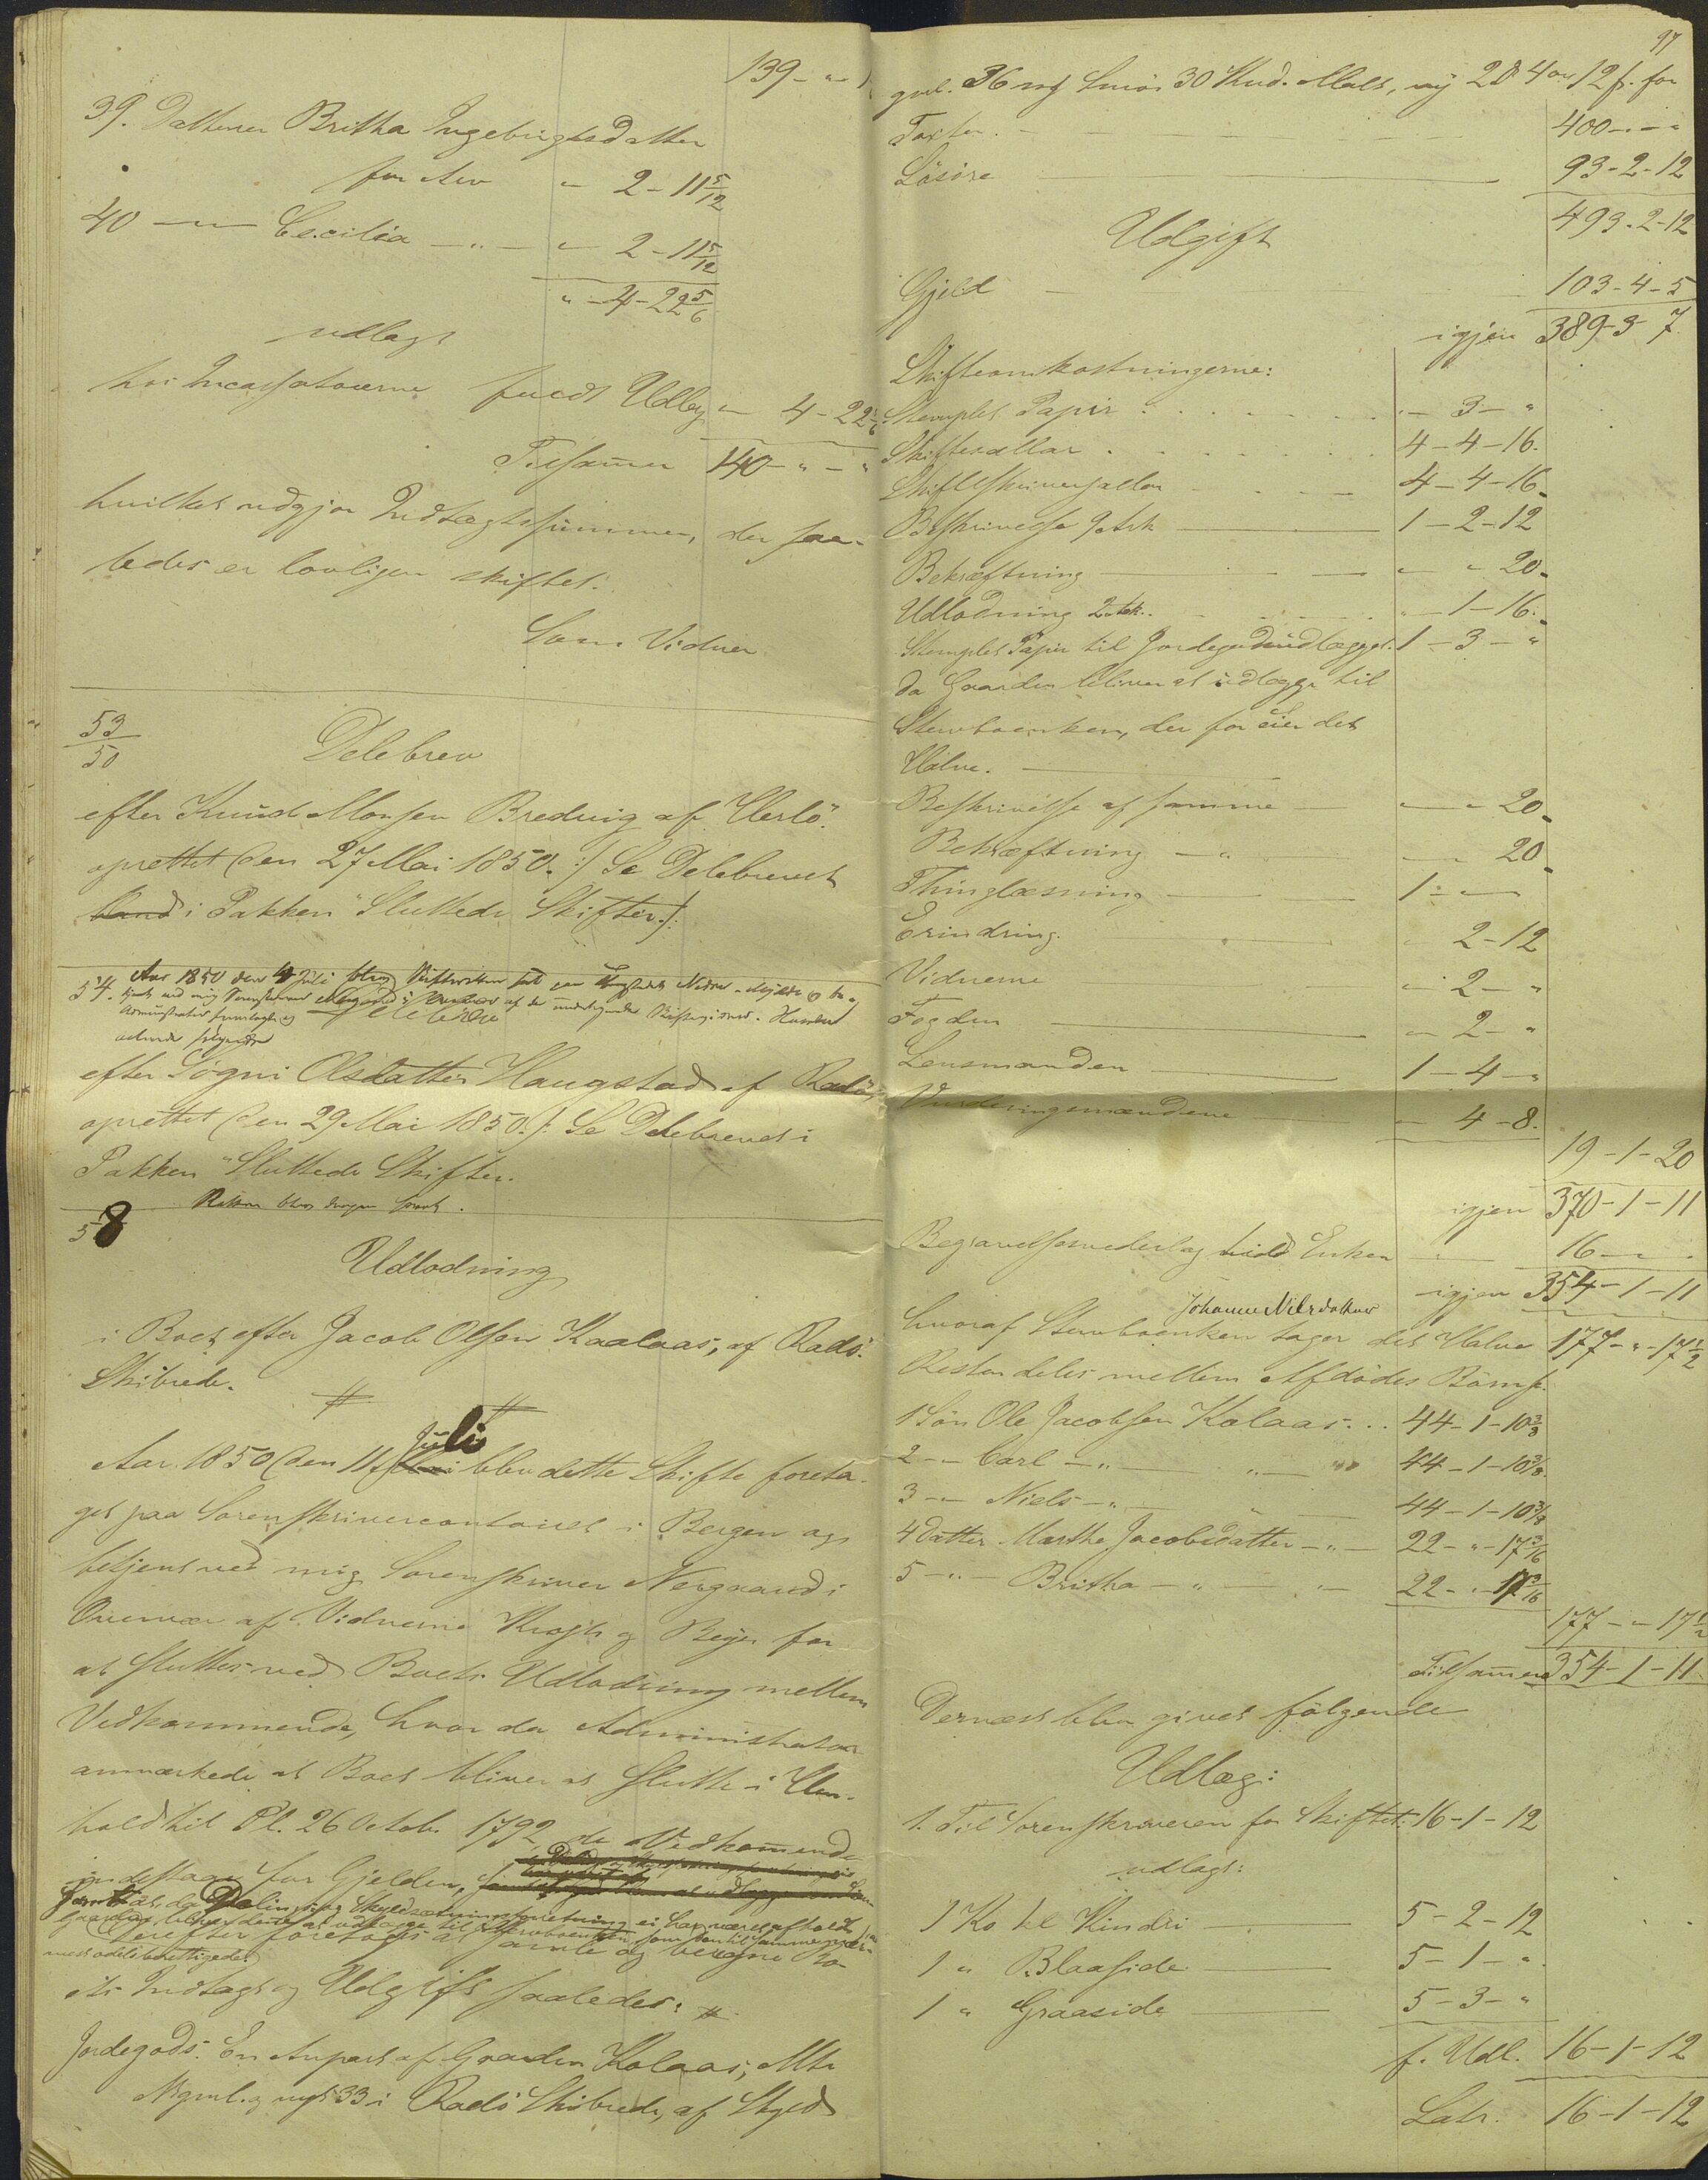 139 - " - "
39. Datteren Britha Ingebrigtsdatter
for Arv " 2 - 11 5/12
40 — " — Cecilia — " — " 2 - 11 5/12
" - 4 - 22 5/6
udlagt
hos Incassatorerne fuldt Udlæg " 4 - 22 5/6
Tilsammen 140 - " - "
hvilket udgjør Indtægtssummen, der saa-
ledes er lovligen skiftet.
Som Vidner
53/50
Delebrev
efter Knud Monsen Bredvig af Herlö.
oprettet den 27 Mai 1850. /: Se Delebrevet
i Pakken "Sluttede Skifter :/
54. Aar 1850 den 4 Juli blev Skifteretten sat paa
Delebrev
efter Sögni Olsdatter Haugstad af Radö,
oprettet den 29 Mai 1850. /: Se Delebrevet i
Pakken "Sluttede Skifter.
Retten blev derpaa hævet.
58
Udlodning
i Boet efter Jacob Olsen Kaalaas, af Radö
Skibrede.
Aar 1850 den 11 Juli blev dette Skifte foreta-
get paa Sorenskrivercontoiret i Bergen og
betjent ved mig Sorenskriver Nergaard i
Overvær af Vidnerne Krogh og Beyer for
at sluttes ved Boets Udlodning mellem
Vedkommende, hvor da Administrator
anmærkede at Boet bliver at slutte i Hen-
hold til Pl. 26 Octob. 1792, da Vedkommende
indestaar for Gjelden,
samt at, da Delings og Skyldsætningsforretning ei har været afholdt,
Gaarden bliver dette at udlægge til Sterboenken som den til Sammes nær-
mest odelsberettigede.
Derefter foretoges at samle og beregne Bo-
ets Indtægt og Udgift saaledes:
Jordegods: En Anpart af Gaarden Kolaas, Mtr
No gml. og nyt 33 i Radö Skibrede, af Skyld
97
gml. 36 mk Smör 30 Kud. Malt, ny 2 d 4 ort 12 s. for
Taxten - 400 - " - "
Lösöre 93 - 2 - 12
493 - 2 - 12
Udgift
Gjeld 103 - 4 - 5
igjen 389 - 3 - 7
Skifteomkostningerne:
Stemplet Papir . " - 3 - "
Skiftesallar . 4 - 4 - 16.
Skifteskriversallar 4 - 4 - 16.
Beskrivelse 9 Ark 1 - 2 - 12
Bekræftning " " 20.
Udlodning 2 Ark. " - 1 - 16.
Stemplet Papir til Jordegodsudlægget. 1 - 3 - "
da Gaarden bliver at udlægge til
Stervboenken, der for eier det
Halve.
Beskrivelse af samme — " - " 20.
Bekræftning — " " - " 20.
Thinglæsning 1 - " - "
Erindring. " 2 - 12
Vidnerne " 2 - "
Fogden " 2 - "
Lensmanden 1 - 4 - "
Vurderingsmændene " 4 - 8.
19 - 1 - 20
igjen 370 - 1 - 11
Begravelsesvederlag til Enken 16 - " - "
igjen 354 - 1 - 11
Johanne Nilsdatter
hvoraf Stervboenken tager det Halve 177 - " - 17 1/2
Resten deles mellem Afdödes Börn s.
1 Sön Ole Jacobsen Kolaas . . . 44 - 1 - 10 3/8
2 — " Carl — " — " — 44 - 1 - 10 3/8.
3 — " Niels — " — " 44 - 1 - 10 3/8
4 Datter Martha Jacobsdatter — " — 22 - " - 17 3/16
5 — " — Britha — " — " — 22 - " - 17 3/16
177 - " - 17 1/2
Tilsammen 354 - 1 - 11
Dernæst blev givet fölgende
Udlæg:
1. Til Sorenskriveren for Skiftet: 16 - 1 - 12
udlagt:
1 Ko kl Kindri 5 - 2 - 12
1 " Blaaside 5 - 1 - "
1 " Graaside 5 - 3 - "
f. Udl. 16 - 1 - 12
Latr. 16 - 1 - 12